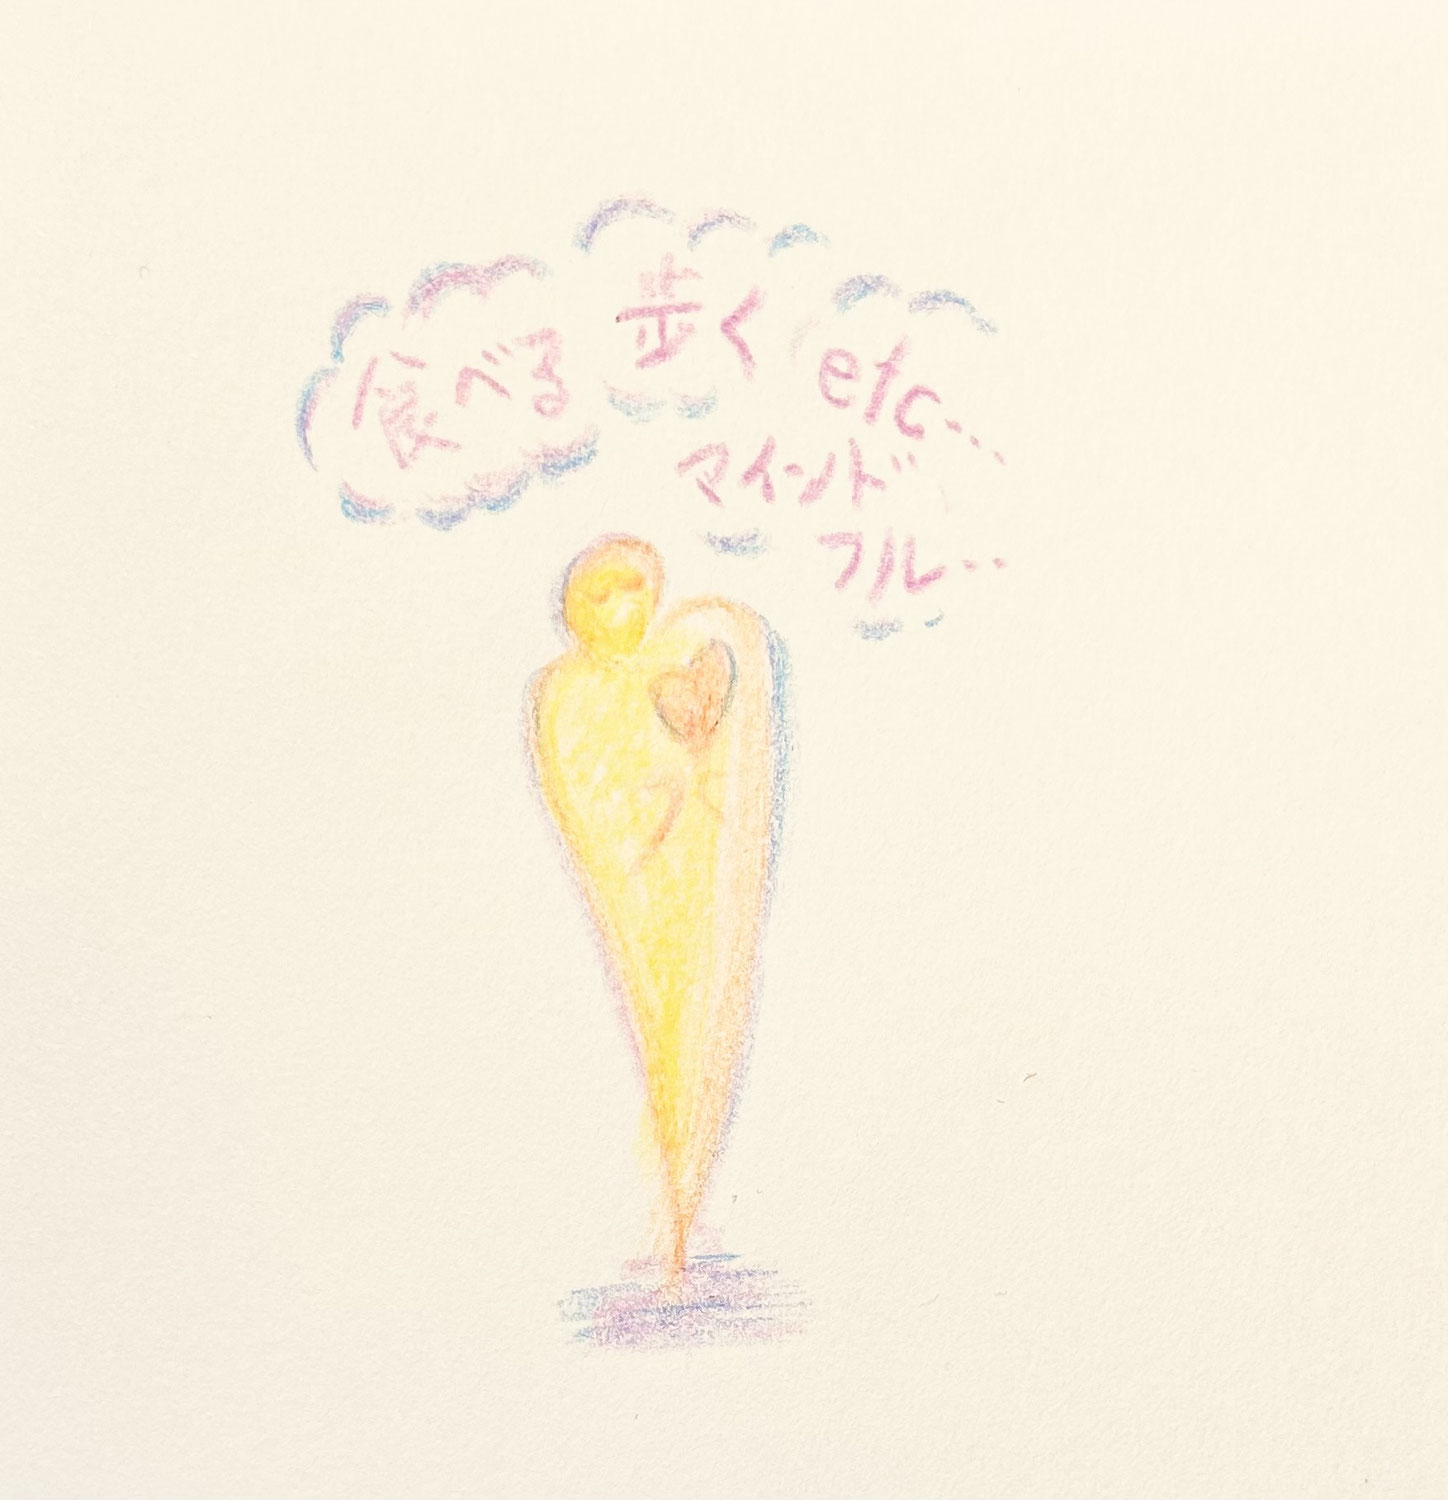 食べる
歩く
etc...
マインド
フル..